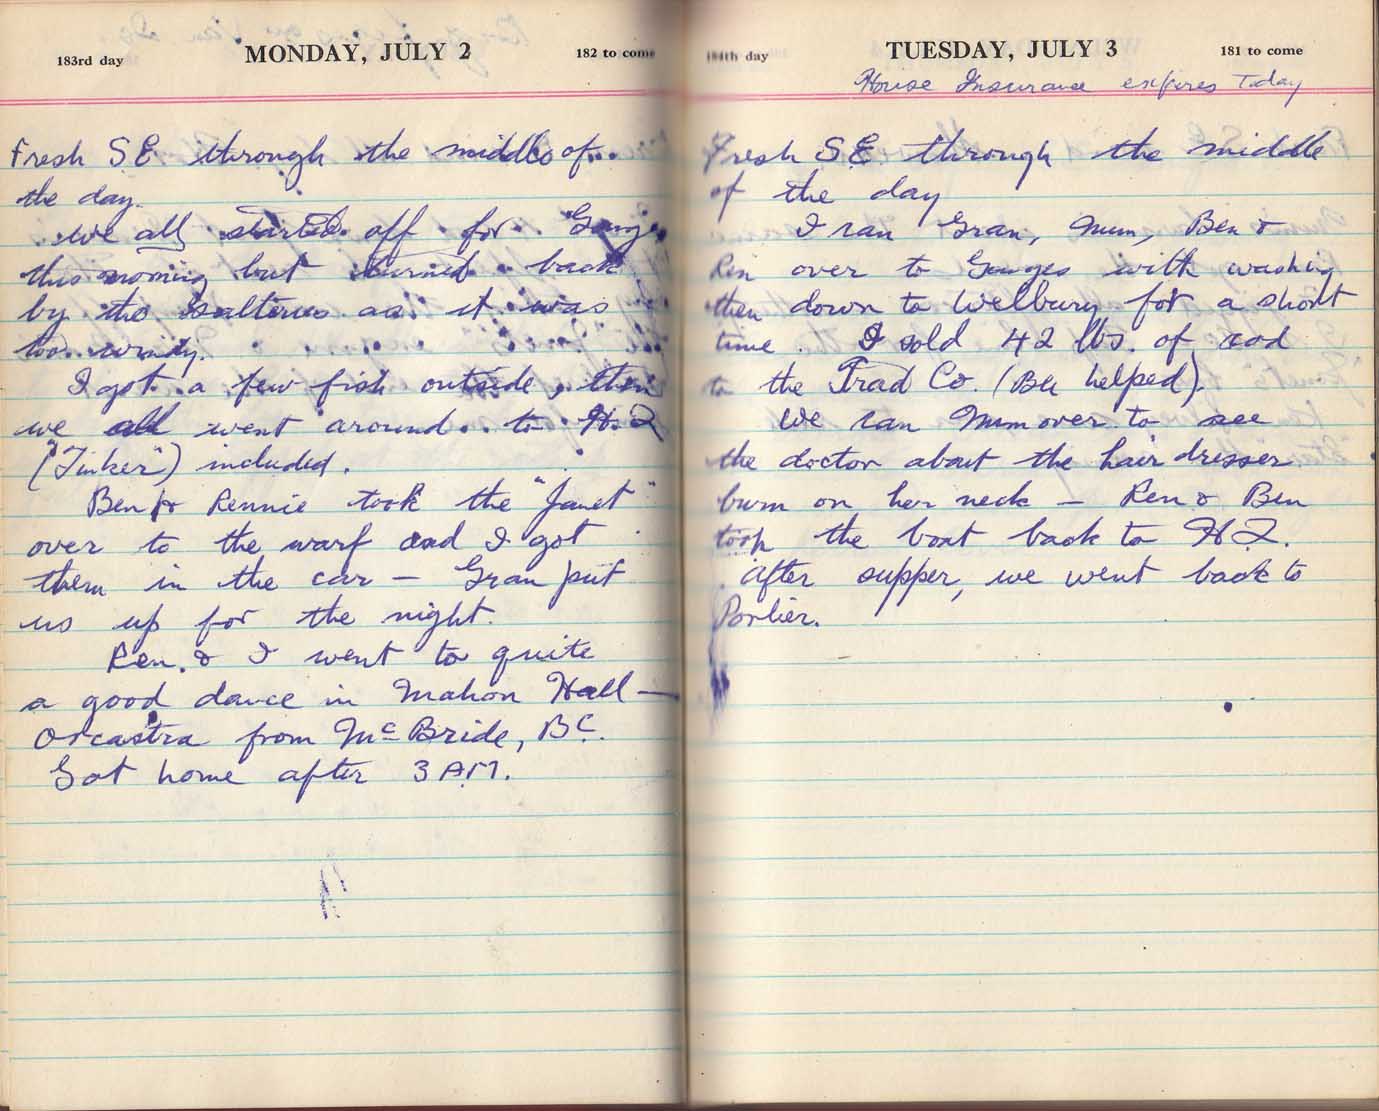 183rd day MONDAY, JULY 2 182 to come
Fresh S.E. through the middle of
the day.
We all started off for Ganges
this morning but turned back
by the Salteries as it was
too windy.
I got a few fish outside, then
we all went around to H.Q
("Tinker") included.
Ben & Rennie took the "Janet"
over to the warf and I got
them in the car — Gran put
us up for the night.
Ren. & I went to quite
a good dance in Mahon Hall —
Orcastra from Mc Bride, BC.
Got home after 3 AM.
184th day TUESDAY, JULY 3 181 to come
House Insurance expires Today
Fresh S.E. through the middle
of the day
I ran Gran, Mum, Ben &
Ren over to Ganges with washing
then down to Welbury for a short
time. I sold 42 lbs. of cod
to the Trad Co. (Ben helped).
We ran Mum over to see
the doctor about the hair dresser
burn on her neck — Ren & Ben
took the boat back to H.Q.
After supper, we went back to
Porlier.